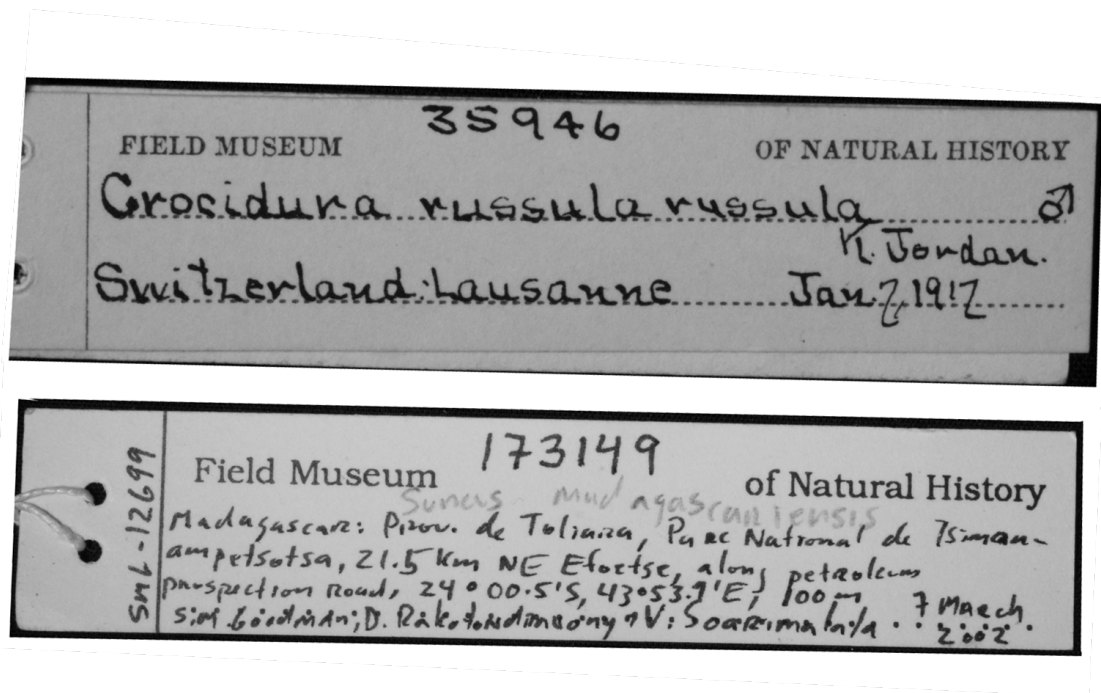 35946
FIELD MUSEUM OF NATURAL HISTORY
Crocidura russula russula ♂
K. Jordan.
Switzerland: Lausanne Jan. 7, 1917
173149
Field Museum of Natural History
Suncus madagascariensis
Madagascar: Prov. de Toliara, Parc National de Tsiman-
ampetsotsa, 21.5 km NE Efoetse, along petroleum
prospection road, 24° 00.5'S, 43°53.1'E; 100m 7 March
S.M. Goodman; D. Rakotondimaony V. Soarimalala 2002
SML-12699